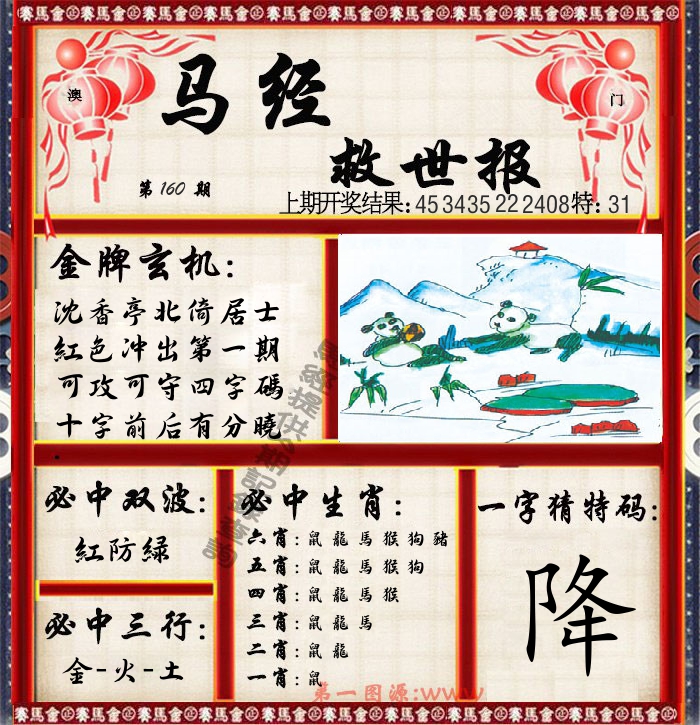 賽馬會㊣賽馬會㊣賽馬會㊣賽馬會㊣賽馬會㊣賽馬會㊣賽馬會㊣賽馬會㊣賽馬會㊣
澳
门
马经
救世报
第160期
上期开奖结果:45 34 35 22 24 08 特:31
金牌玄机:
沈香亭北倚居士
紅色冲出第一期
可攻可守四字碼
十字前后有分曉
必中双波:
紅防緑
必中三行:
金-火-土
必中生肖:
六肖:鼠龍馬猴狗豬
五肖:鼠龍馬猴狗
四肖:鼠龍馬猴
三肖:鼠龍馬
二肖:鼠龍
一肖:鼠
一字猜特码:
降
第一图源:www